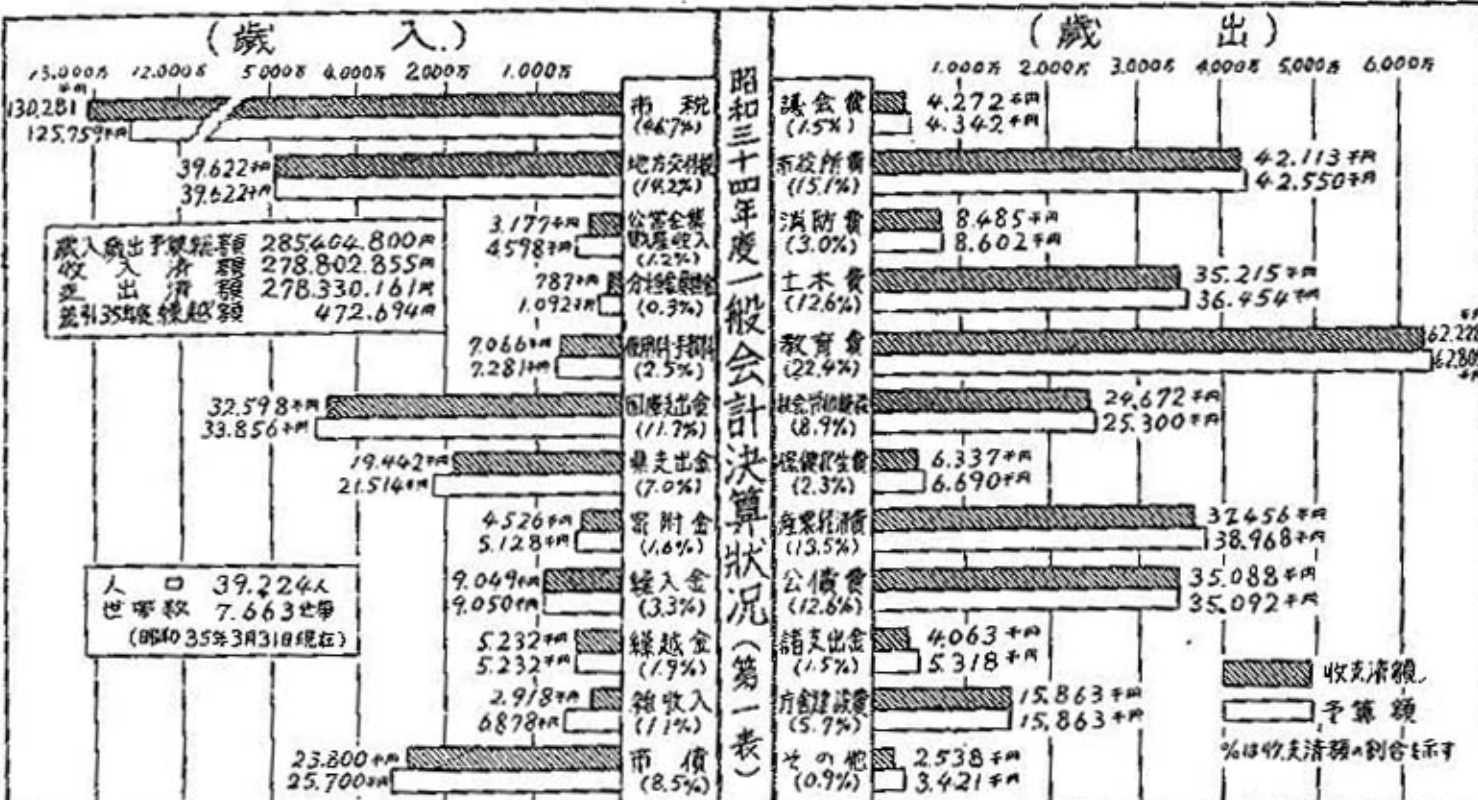 (歳入)
13.000万 12.000万 5.000万 4.000万 2.000万 1.000万
130.281千円
125.759千円
市税
(46.7%)
39.622千円
39.622千円
地方交付税
(14.2%)
3.177千円
4.598千円
公営企業
財産収入
(1.2%)
787千円
1.092千円
(0.3%)
7.066千円
7.281千円
使用料手数料
(2.5%)
32.598千円
33.856千円
国庫支出金
(11.7%)
19.442千円
21.514千円
県支出金
(7.0%)
4.526千円
5.128千円
寄附金
(1.6%)
9.049千円
9.050千円
繰入金
(3.3%)
5.232千円
5.232千円
繰越金
(1.9%)
2.918千円
6.878千円
雑収入
(1.1%)
23.800千円
25.700千円
市債
(8.5%)
歳入歳出予算総額 285.404.800円
収入済額 278.802.855円
支出済額 278.330.161円
差引35年度繰越額 472.694円
人口 39.224人
世帯数 7.663世帯
(昭和35年3月31日現在)
昭和三十四年度一般会計決算状況(第一表)
(歳出)
1.000万 2.000万 3.000万 4.000万 5.000万 6.000万
議会費
(1.5%)
4.272千円
4.342千円
市役所費
(15.1%)
42.113千円
42.550千円
消防費
(3.0%)
8.485千円
8.602千円
土木費
(12.6%)
35.215千円
36.454千円
教育費
(22.4%)
社会労働施設費
(8.9%)
24.672千円
25.300千円
保健衛生費
(2.3%)
6.337千円
6.690千円
産業経済費
(13.5%)
37.456千円
38.968千円
公債費
(12.6%)
35.088千円
35.092千円
諸支出金
(1.5%)
4.063千円
5.318千円
庁舎建設費
(5.7%)
15.863千円
15.863千円
その他
(0.9%)
2.538千円
3.421千円
収支済額
予算額
%は収支済額の割合を示す